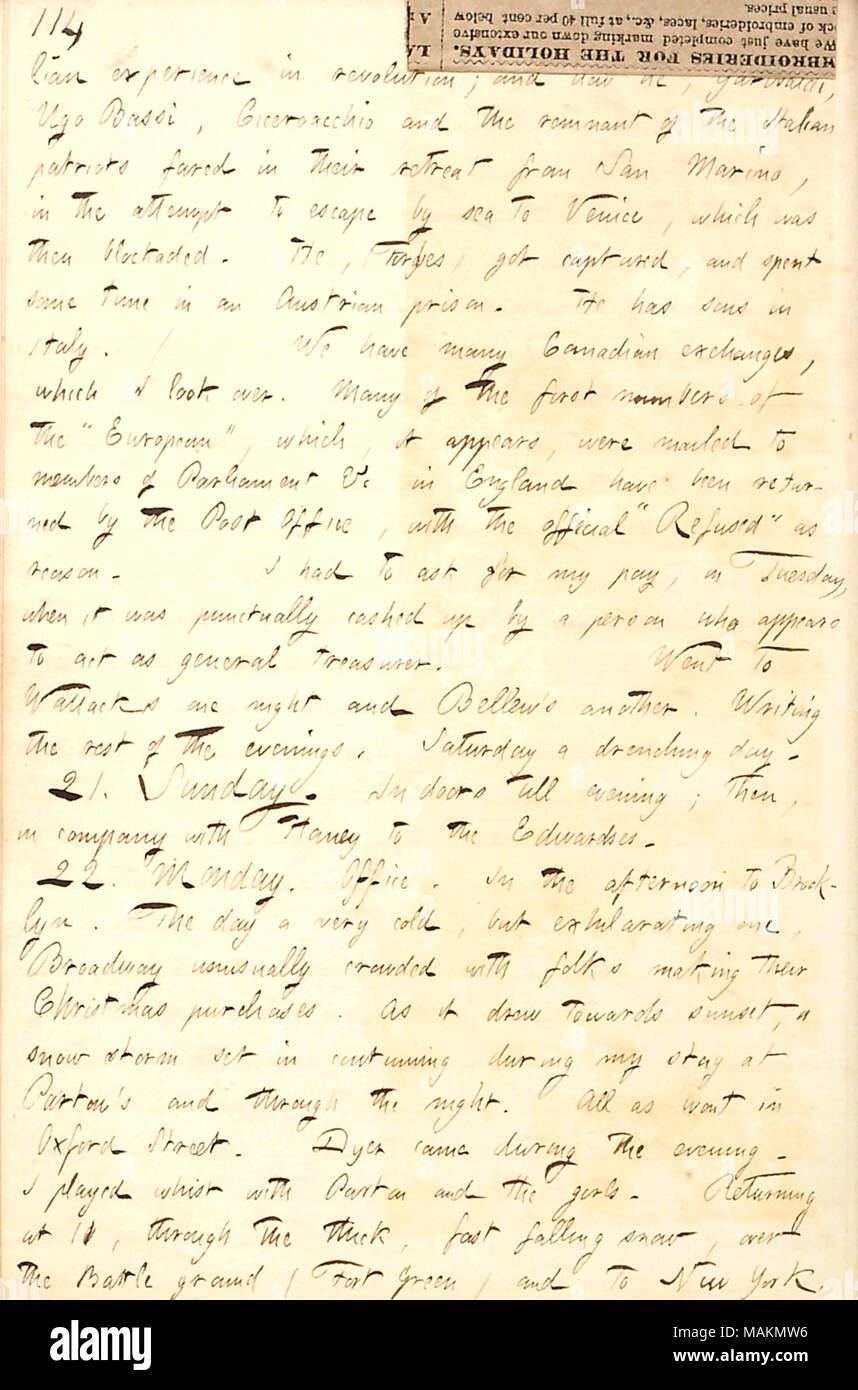 114
EMBROIDERIES FOR THE HOLIDAYS.
We have just completed marking down our extensive
ck of embroideries, laces, &c., at full 40 per cent below
e usual prices.
LA
A
lian experience in revolution; and how he, Garibaldi,
Ugo Bassi, Ciceroacchio and the remnant of the Italian
patriots fared in their retreat from San Marino,
in the attempt to escape by sea to Venice, which was
then blockaded. He, (Forbes) got captured, and spent
some time in an Austrian prison. He has sons in
Italy. / We have many Canadian exchanges,
which I look over. Many of the first numbers of
the "European", which, it appears, were mailed to
members of Parliament &c in England have been retur-
ned by the Post Office, with the official "Refused" as
reason. I had to ask for my pay, on Tuesday,
when it was punctually cashed up by a person who appears
to act as general treasurer. Went to
Wallacks one night and Bellew's another. Writing
the rest of the evenings. Saturday a drenching day.
21. Sunday. In doors till evening; then,
in company with Haney to the Edwardses.
22. Monday. Office. In the afternoon to Brook-
lyn. The day a very cold, but exhilarating one,
Broadway unusually crowded with folks making their
Christmas purchases. As it drew towards sunset, a
snow storm set in continuing during my stay at
Parton's and through the night. All as wont in
Oxford Street. Dyer came during the evening.
I played whist with Parton and the girls. Returning
at 11, through the thick, fast falling snow, over
the Battle ground (Fort Green) and to New York.
alamy
Image ID: MAKMW6
www.alamy.com